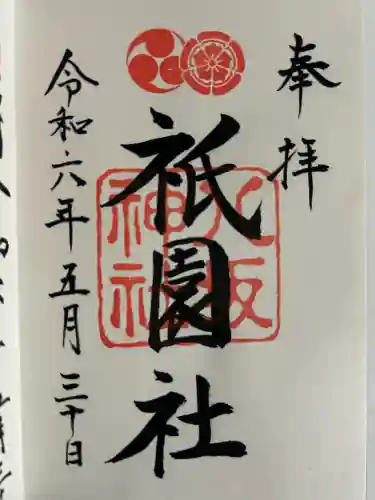 奉拝
八坂神社
祇園社
令和六年五月三十日